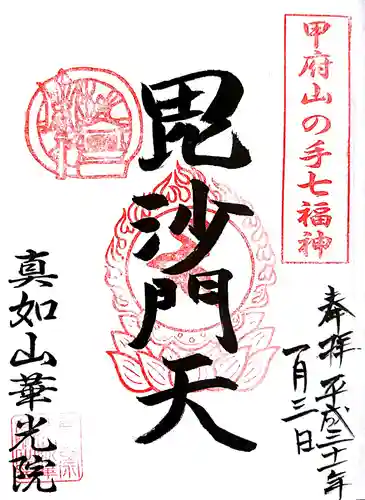 甲府山の手七福神
奉拝 平成三十一年
一月三日
毘沙門天
真如山華光院